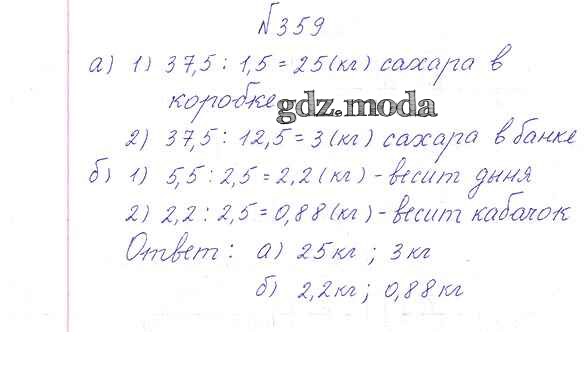 №359
а) 1) 37,5 : 1,5 = 25 (кг) сахара в
коробке
gdz.moda
2) 37,5 : 12,5 = 3 (кг) сахара в банке
б) 1) 5,5 : 2,5 = 2,2 (кг) - весит дыня
2) 2,2 : 2,5 = 0,88 (кг) - весит кабачок
Ответ: а) 25 кг ; 3 кг
б) 2,2 кг ; 0,88 кг